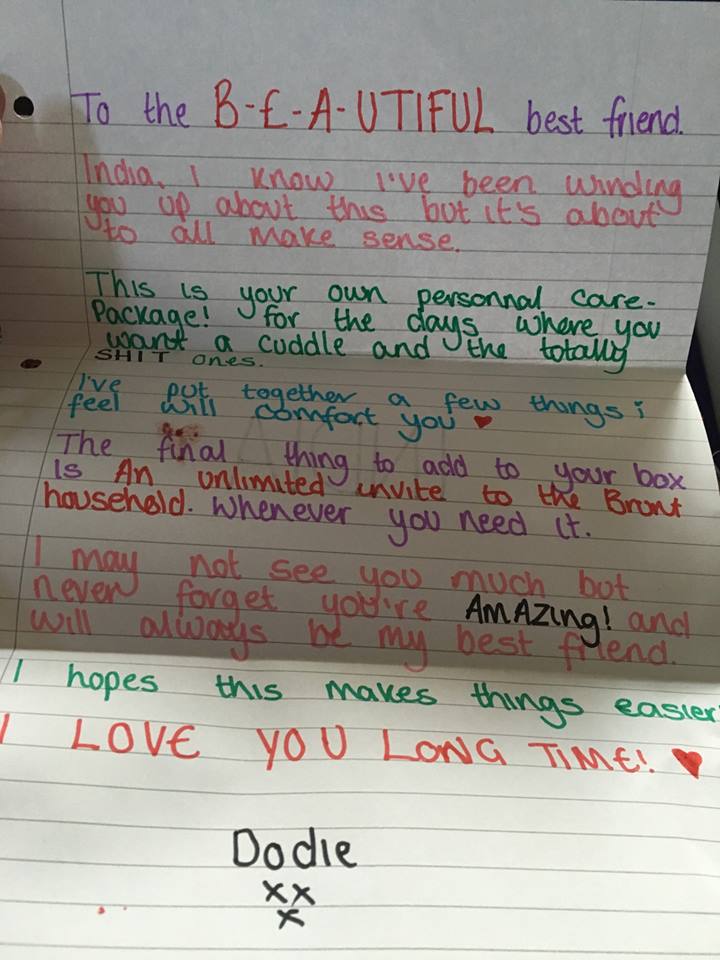 To the B-E-A-UTIFUL best friend.
India, I know I've been winding
you up about this but it's about
to all make sense.
This is your own personnal care-
Package! for the days where you
want a cuddle and the totally
SHIT ones.
I've put together a few things i
feel will comfort you ♥
The final thing to add to your box
is An unlimited invite to the Brunt
household. Whenever you need it.
I may not see you much but
never forget you're AMAZing! and
will always be my best friend.
I hopes this makes things easier
I LOVE YOU LONG TIME! ♥
Dodie
xx
x